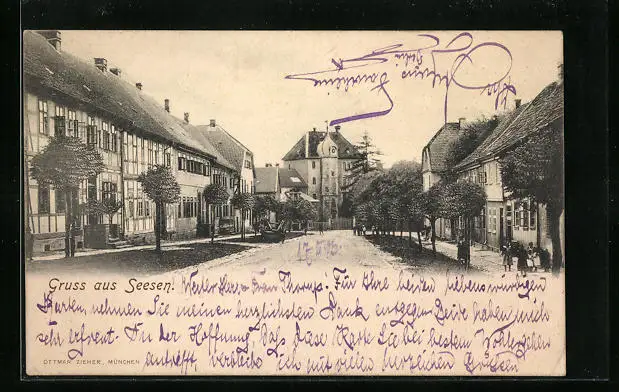 Gruss aus Seesen.
Werter Herr Für Ihre beiden liebenswürdigen
Karten nehmen Sie meinen herzlichsten Dank entgegen Beide haben mich
sehr erfreut. In der Hoffnung, dass diese Karte Sie bei bestem Wohlergehen
antrifft, verbleibe ich mit vielen herzlichen Grüssen
OTTMAR ZIEHER, MÜNCHEN